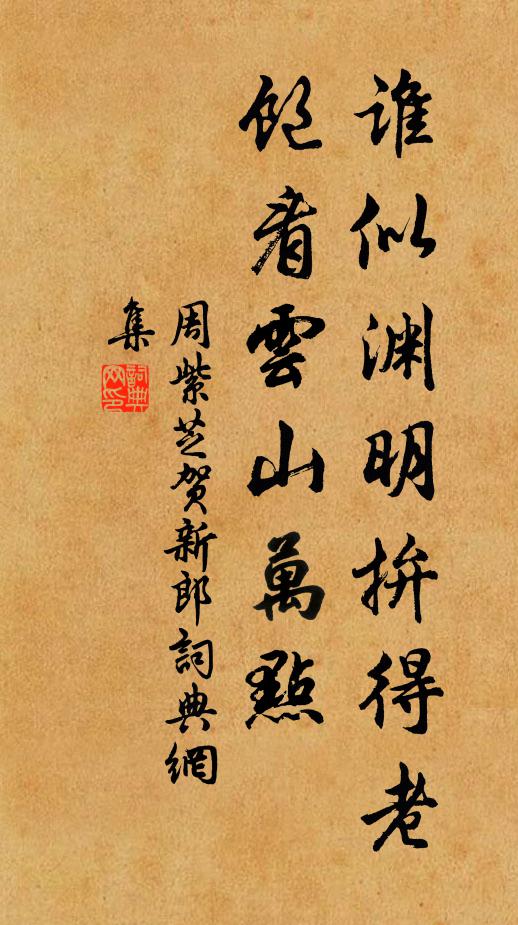 誰似渊明拚得老
飽看雲山萬點
周紫芝賀新郎詞典網
集
詞典
网印